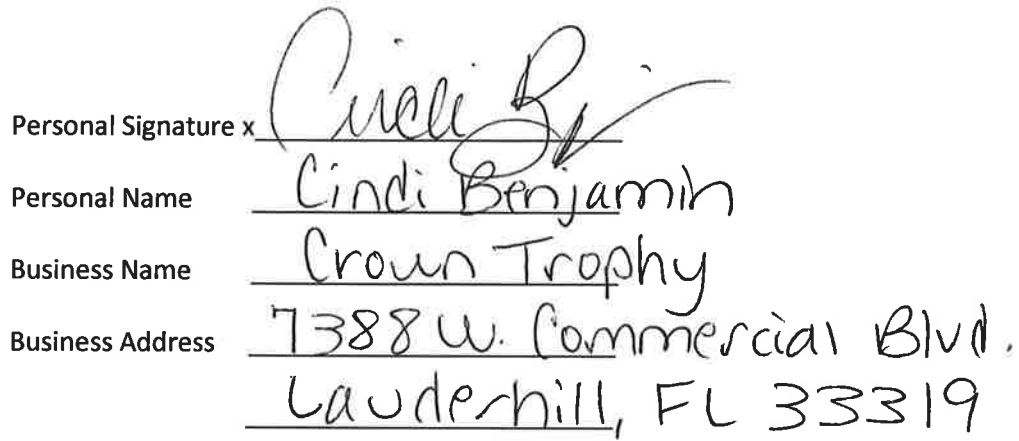 Personal Signature x Cindi B
Personal Name Cindi Benjamin
Business Name Crown Trophy
Business Address 7388 W. Commercial Blvd.
Lauderhill, FL 33319